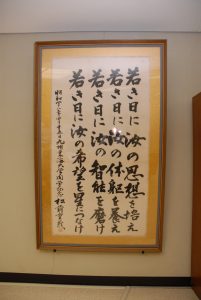 若き日に汝の思想を培え
若き日に汝の体躯を養え
若き日に汝の智能を磨け
若き日に汝の希望を星につなげ
昭和 松前重義